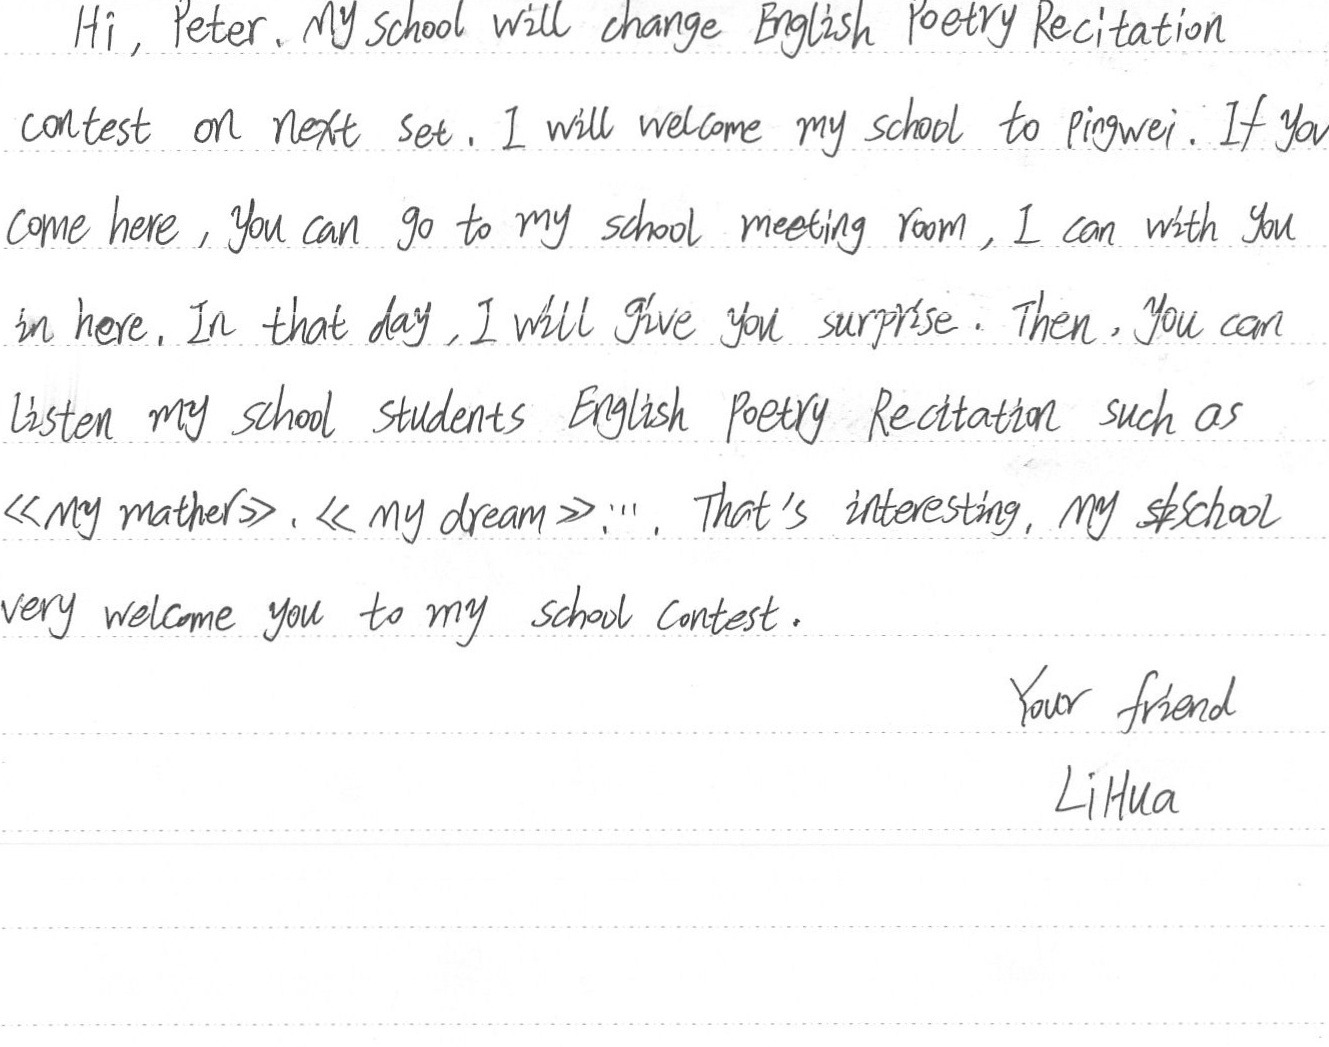 Hi, Peter. My school will change English Poetry Recitation
contest on next set. I will welcome my school to pingwei. If you
come here, you can go to my school meeting room, I can with you
in here. In that day, I will give you surprise. Then, you can
listen my school students English Poetry Recitation such as
≪My mather≫. ≪my dream≫..... That's interesting, My school
very welcome you to my school contest.
Your friend
LiHua